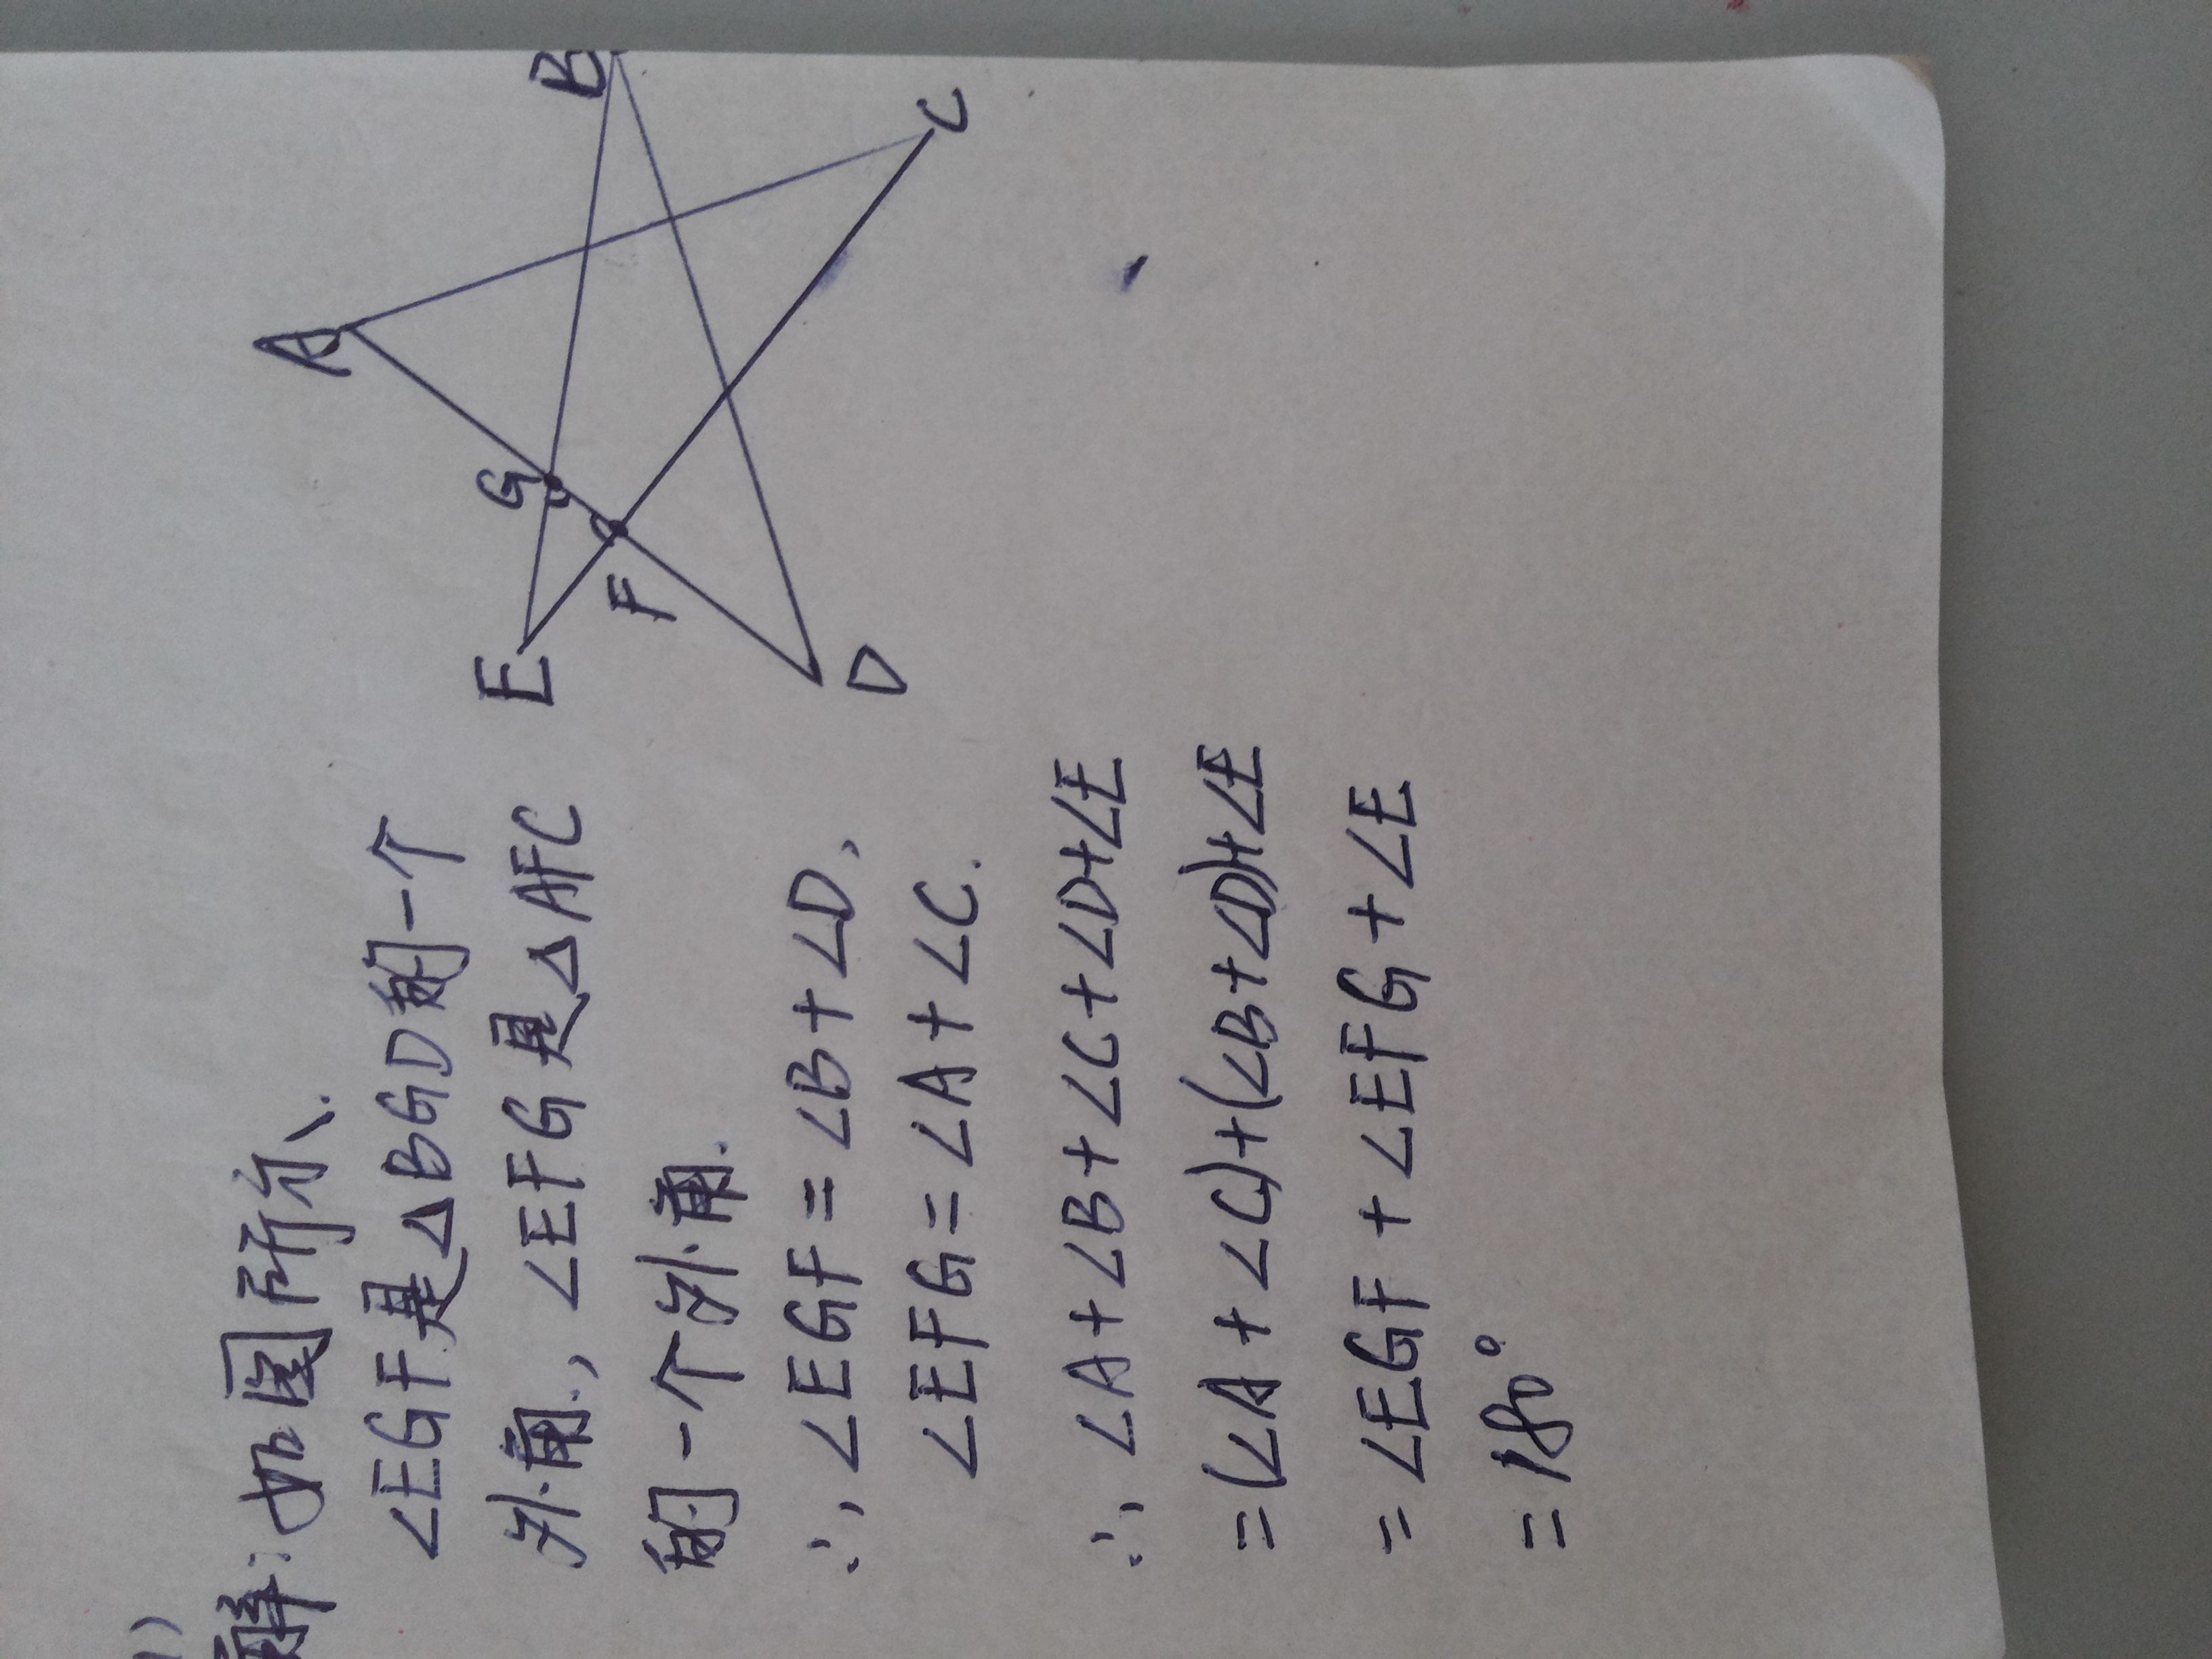 1)
解:如图所示.
∠EGF是△BGD的一个
外角.,∠EFG是△AFC
的一个外角.
∴,∠EGF=∠B+∠D,
∠EFG=∠A+∠C.
∴,∠A+∠B+∠C+∠D+∠E
=(∠A+∠C)+(∠B+∠D)+∠E
=∠EGF+∠EFG+∠E
=180°
A
B
C
D
E
F
G